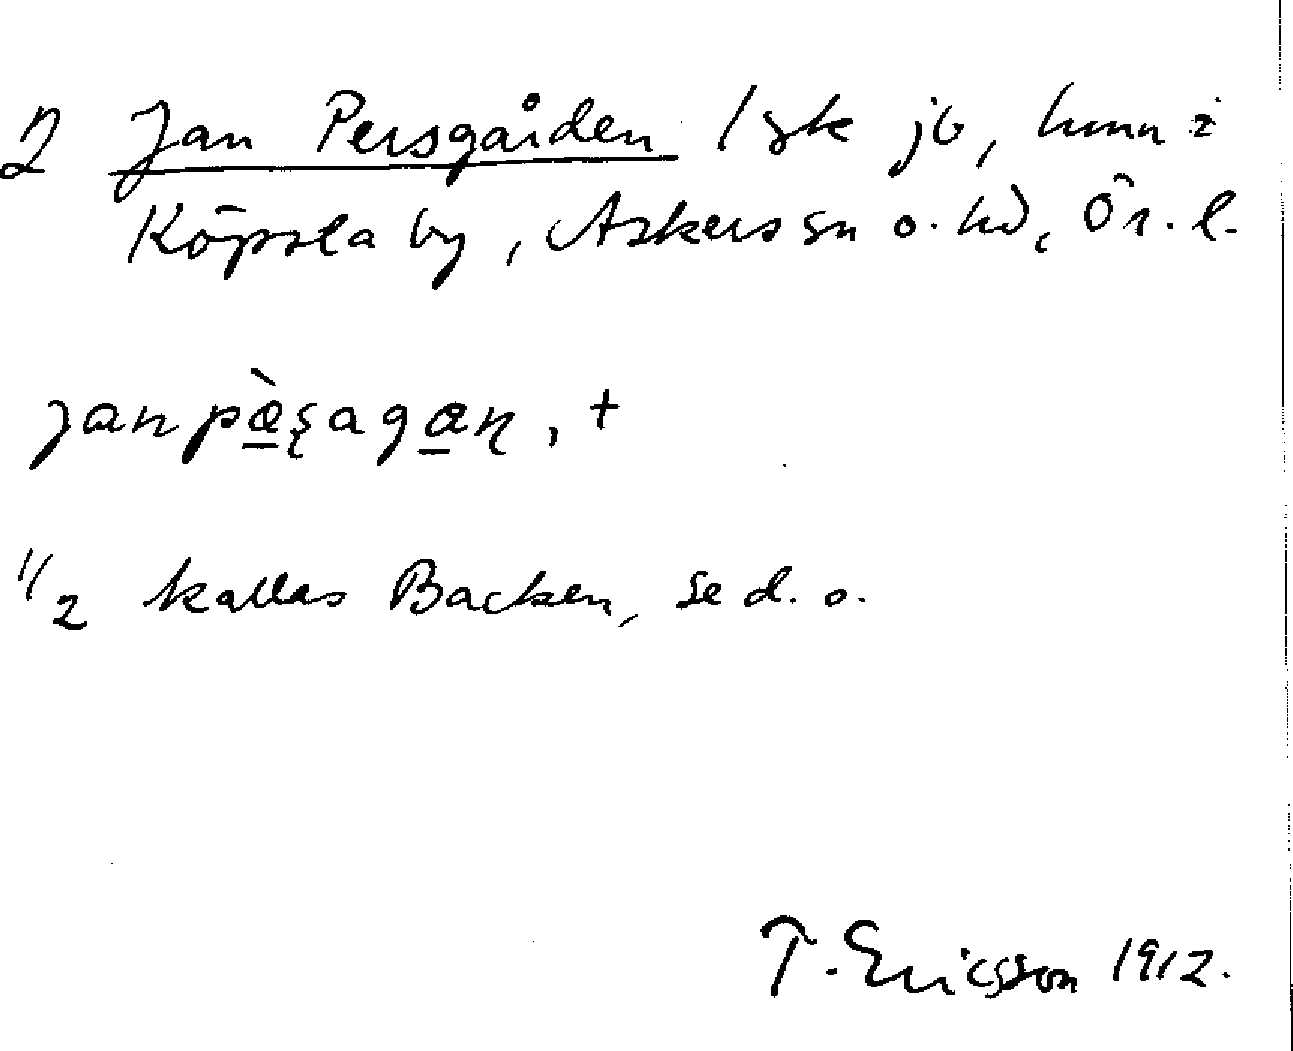 2 Jan Persgården 1 gk jb, hmn i
Köpsta by, Askers sn o. hd, Ör. l.
janpæ̲̀ʂagæ̲ɳ, +
1/2 kallas Backen, se d. o.
T. Ericsson 1912.